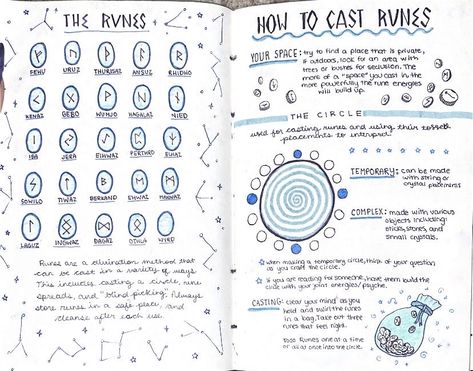 THE RUNES
FEHU URUZ THURISAZ ANSUZ RHIDHO
KENAZ GEBO WUNJO HAGALAZ NIED
ISA JERA EIHWAZ PERTHRO ELHAZ
SOWILO TIWAZ BERKANO EHWAZ MANNAZ
LAGUZ INGWAZ DAGAZ OTHILA WYRD
Runes are a divination method that
can be cast in a variety of ways.
This includes casting a circle, rune
spreads, and "blind picking". Always
store runes in a safe place, and
cleanse after each use.
HOW TO CAST RUNES
YOUR SPACE: try to find a place that is private,
if outdoors, look for an area with
trees or bushes for seclusion. The
more of a "space" you cast in the
more powerfully the rune energies
will build up.
THE CIRCLE
used for casting runes and using their tossed
placements to interpret
TEMPORARY: can be
made with string or
crystal placements
COMPLEX: made with various
objects including
sticks, stones, and
small crystals.
when making a temporary circle, think of your question
as you craft the circle.
if you are reading for someone, have them build the
circle with your joint energies/psyche.
CASTING: clear your mind as you
hold and swirl the runes
in a bag. Take out three
runes that feel right.
Toss runes one at a time
or all at once into the circle.